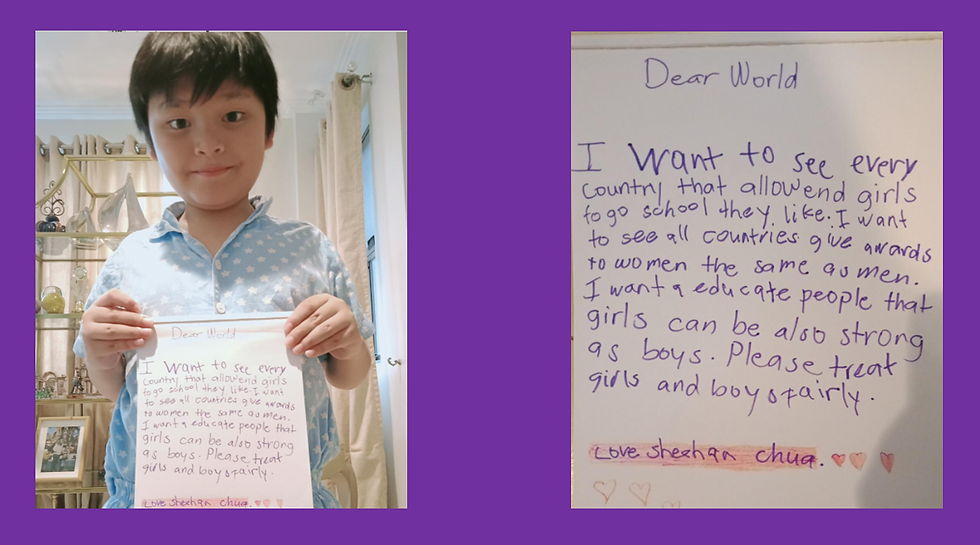 Dear World
I want to see every
country that allowend girls
to go school they like. I want
to see all countries give awards
to women the same as men.
I want a educate people that
girls can be also strong
as boys. Please treat
girls and boys fairly.
Love sheehan chua.
Dear World
I want to see every
country that allowend girls
to go school they like. I want
to see all countries give awards
to women the same as men.
I want a educate people that
girls can be also strong
as boys. Please treat
girls and boys fairly.
Love sheehan chua.